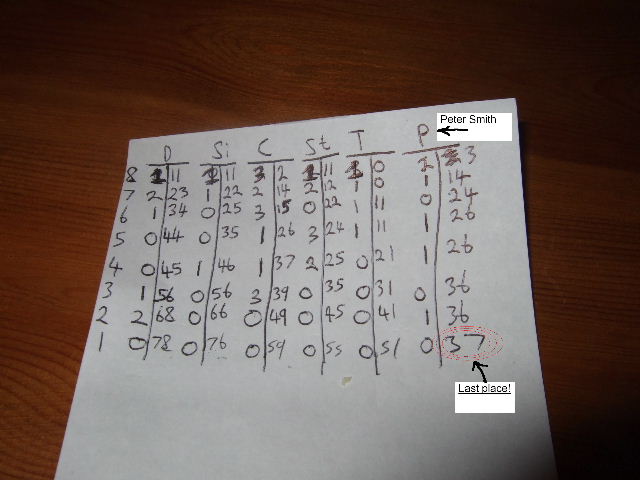 Peter Smith
D Si C St T P
8 1 11 1 11 3 2 1 11 1 0 2 3
7 2 23 1 22 2 14 2 12 1 0 1 14
6 1 34 0 25 3 15 0 22 1 11 0 24
5 0 44 0 35 1 26 3 24 1 11 1 26
4 0 45 1 46 1 37 2 25 0 21 1 26
3 1 56 0 56 3 39 0 35 0 31 0 36
2 2 68 0 66 0 49 0 45 0 41 1 36
1 0 78 0 76 0 59 0 55 0 51 0 37
Last place!